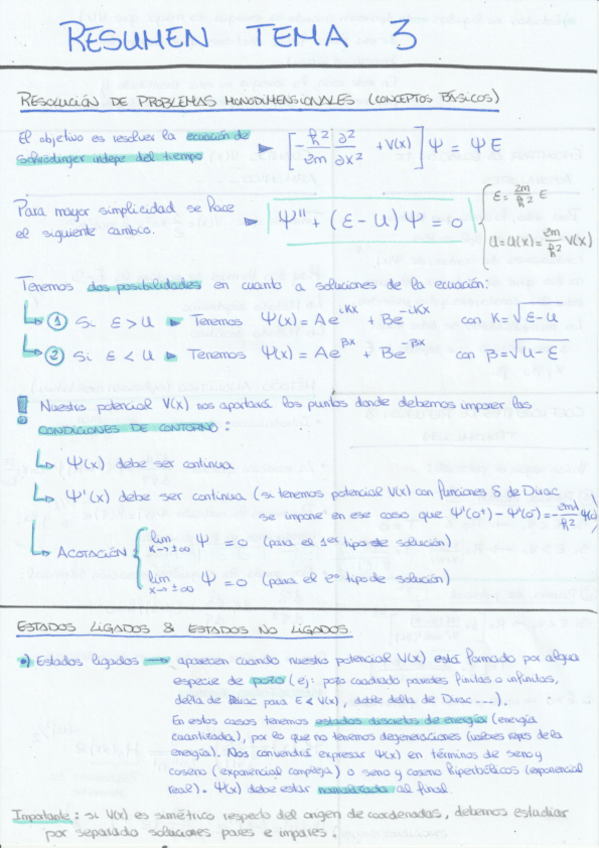 RESUMEN TEMA 3
RESOLUCIÓN DE PROBLEMAS MONODIMENSIONALES (CONCEPTOS BÁSICOS)
El objetivo es resolver la ecuación de
Schrödinger indepe del tiempo ► [-ħ²/2m ∂²/∂x² + V(x)] Ψ = Ψ E
Para mayor simplicidad se hace
el siguiente cambio. ► Ψ'' + (ε - U) Ψ = 0
ε = 2m/ħ² E
U = U(x) = 2m/ħ² V(x)
Tenemos dos posibilidades en cuanto a soluciones de la ecuación:
① Si ε > U ► Tenemos Ψ(x) = Ae^{iKx} + Be^{-iKx} con K = √(ε-U)
② Si ε < U ► Tenemos Ψ(x) = Ae^{βx} + Be^{-βx} con β = √(U-ε)
! Nuestro potencial V(x) nos aportará los puntos donde debemos imponer las
CONDICIONES DE CONTORNO:
Ψ(x) debe ser continua
Ψ'(x) debe ser continua (si tenemos potencial V(x) con funciones δ de Dirac
se impone en ese caso que Ψ'(0⁺) - Ψ'(0⁻) = -2mλ/ħ² Ψ(0))
ACOTACIÓN: lim x→±∞ Ψ = 0 (para el 1er tipo de solución)
lim x→±∞ Ψ = 0 (para el 2º tipo de solución)
ESTADOS LIGADOS & ESTADOS NO LIGADOS
•) Estados ligados → aparecen cuando nuestro potencial V(x) está formado por alguna
especie de pozo (ej: pozo cuadrado paredes finitas o infinitas,
delta de Dirac para E < V(x), doble delta de Dirac ...).
En estos casos tenemos estados discretos de energía (energía
cuantizada), por lo que no tenemos degeneraciones (valores repes de la
energía). Nos convendrá expresar Ψ(x) en términos de seno y
coseno (exponencial compleja) o seno y coseno hiperbólicos (exponencial
real). Ψ(x) debe estar normalizada al final.
Importante: si V(x) es simétrico respecto del origen de coordenadas, debemos estudiar
por separado soluciones pares e impares.